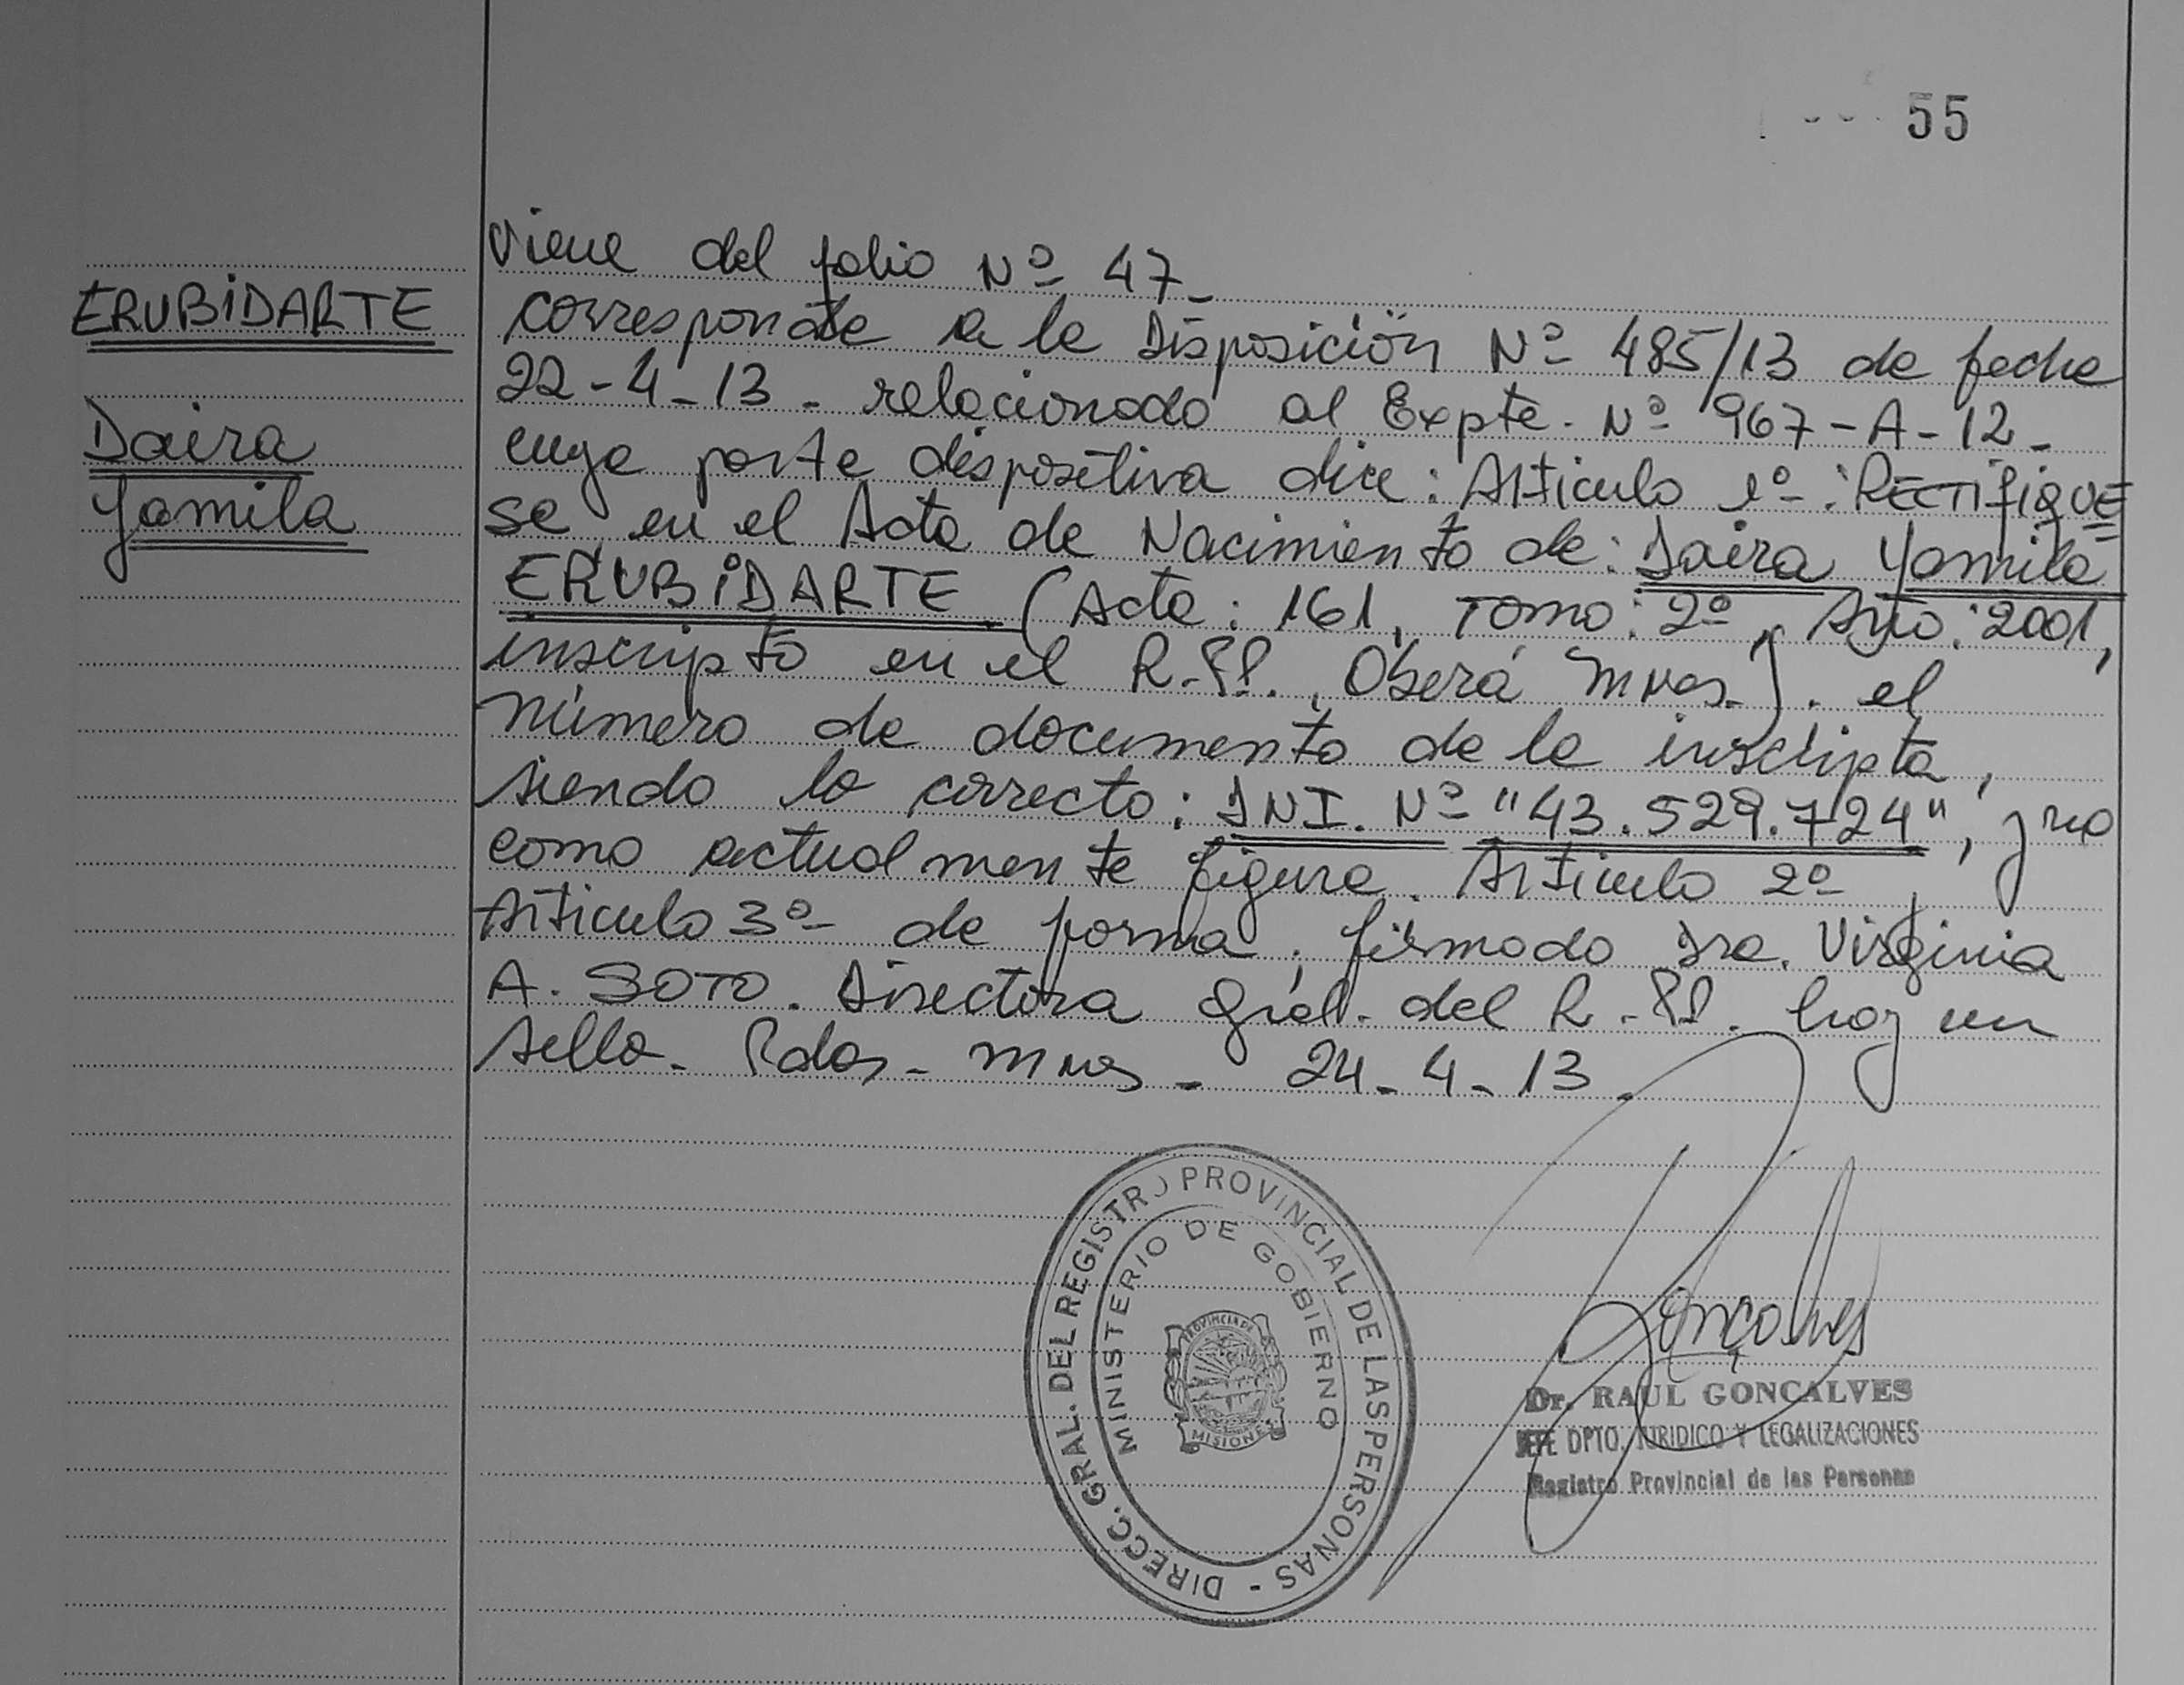 55
ERUBIDARTE
Daira
Yamila
Viene del folio Nº 47_
corresponde a la Disposición Nº 485/13 de fecha
22-4-13 - relacionado al Expte. Nº 967-A-12-
cuya parte dispositiva dice: Articulo 1º: RECTIFIQUE
se en el Acta de Nacimiento de: Daira Yamila
ERUBIDARTE (Acta: 161, Tomo: 2º, Año: 2001,
inscripto en el R.PP. Oberá Mnes.). el
número de documento de la inscripta,
siendo lo correcto: DNI. Nº "43.529.724", y no
como actualmente figura. Articulo 2º y
Articulo 3º de forma, firmado Dra. Virginia
A. SOTO. Directora Gral. del R.PP. hay un
sello- Pdas- Mnes - 24-4-13-
DIRECC. GRAL. DEL REGISTRO PROVINCIAL DE LAS PERSONAS -
MINISTERIO DE GOBIERNO
PROVINCIA DE
MISIONES
Gonçalves
Dr. RAUL GONCALVES
JEFE DPTO. JURIDICO Y LEGALIZACIONES
Registro Provincial de las Personas